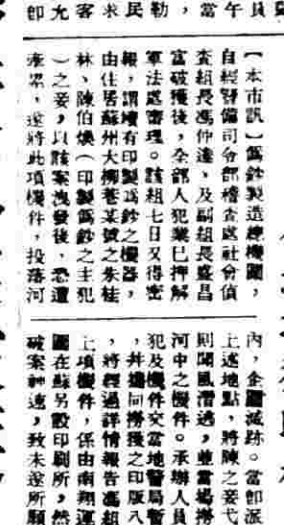 【本市訊】僞鈔製造總機關，
自經警備司令部稽查處社會偵
査組長馮仲達，及副組長盛昌
富破獲後，全部人犯業已押解
軍法處審理。該組七日又得密
報，謂有印製僞鈔之機器，
由住居蘇州大柳巷某號之朱桂
林、陳伯煥（印製僞鈔之主犯
）之妾，以該案洩發後，恐遭
牽累，遂將此項機件，投落河
內，企圖滅跡。當卽派
上述地點，將陳之妾弋
則聞風潛逃，並當場撈
河中之機件。承辦人員
犯及機件交當地警局暫
，并攜同撈獲之印版八
，將經過詳情報告馮組
上項機件，係由南翔運
圖在蘇另設印刷所，然
破案神速，致未遂所願